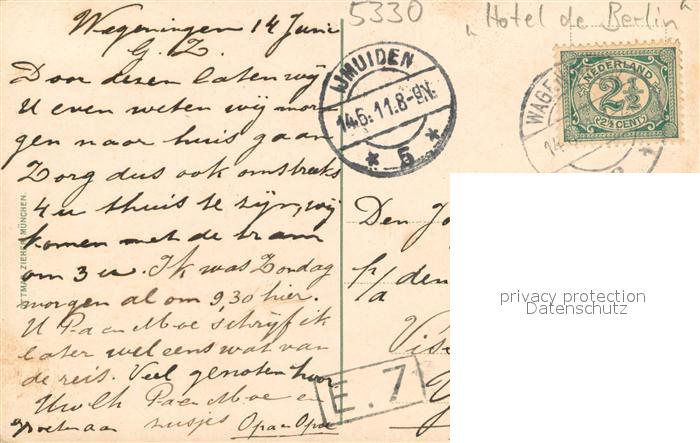 Wageningen 14 Juni
G. Z.
Door dezen laten wij
U even weten wij mor
gen naar huis gaan
Zorg dus ook omstreeks
4 u thuis te zijn, wij
komen met de tram
om 3 u. Ik was Zondag
morgen al om 9,30 hier.
U Pa en Moe schrijf ik
later wel eens wat van
de reis. Veel genoten hoor
Uw lh Pa en Moe en
groeten aan zusjes Opa en Opoe
OTTMAR ZIEHER, MÜNCHEN.
5330
„Hotel de Berlin"
IJMUIDEN
14.6.11.8-9N.
* 5 *
NEDERLAND
2½
2½ CENT
WAGE
14
Den
p/a den
Vis
E. 7
privacy protection
Datenschutz